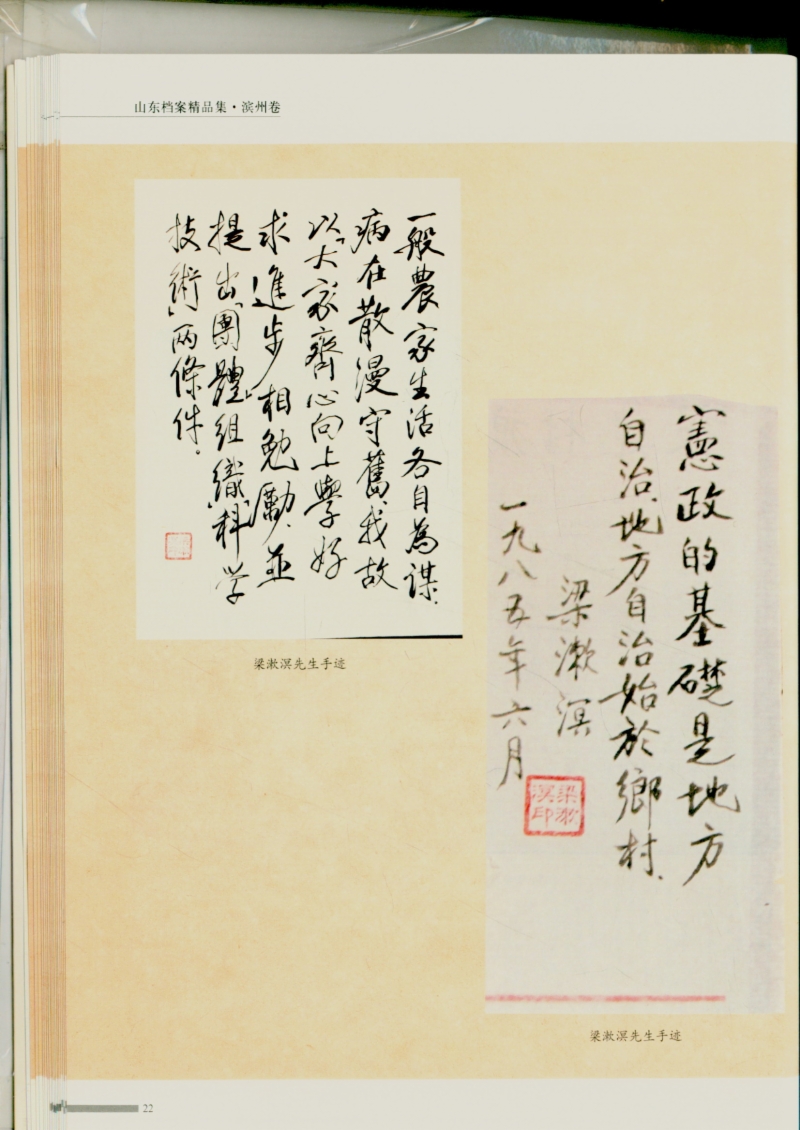 山东档案精品集·滨州卷
一般農家生活各自為謀.
病在散漫守舊,我故
以「大家齊心向上學好
求進步」相勉勵、並
提出「團體組織」「科学
技術」两條件。
梁漱溟先生手迹
憲政的基礎是地方
自治、地方自治始於鄉村.
梁漱溟
一九八五年六月
梁漱溟印
梁漱溟先生手迹
22